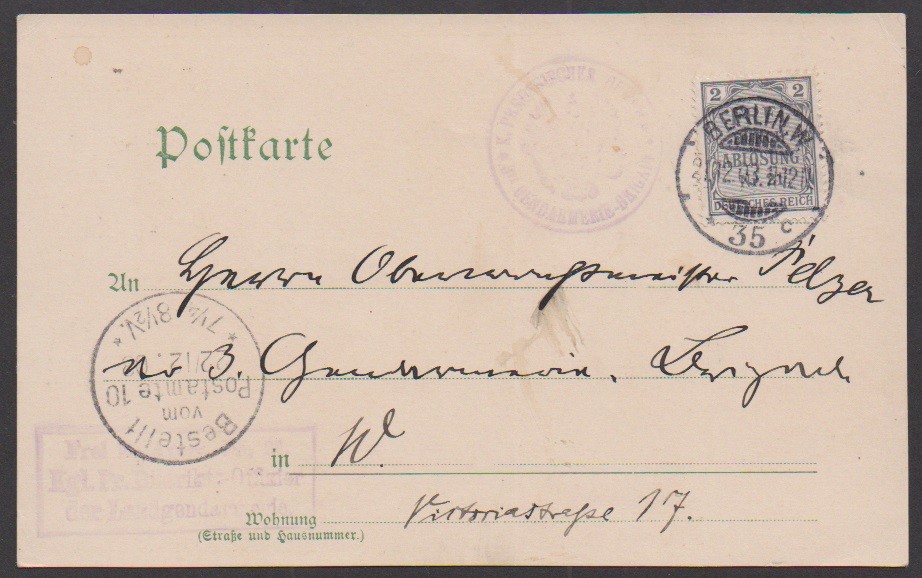 Postkarte
2 2
ABLÖSUNG
DEUTSCHES REICH
BERLIN W
35 c
GENDARMERIE-BRIGADE
An Herrn Oberwachtmeister Pelzer
3. Gendarmerie. Brigade
in W.
Wohnung Victoriastraße 17.
(Straße und Hausnummer.)
Bestellt
vom
Postamte 10
22/12
* 7½-8½V. *
Frei
Kgl. Pr. Distrikts-Offizier
der Landgendarmerie